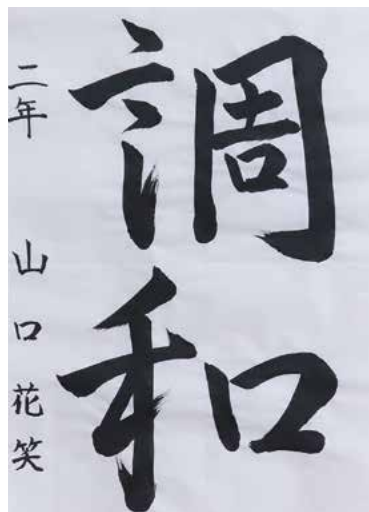 調和
二年 山口花笑